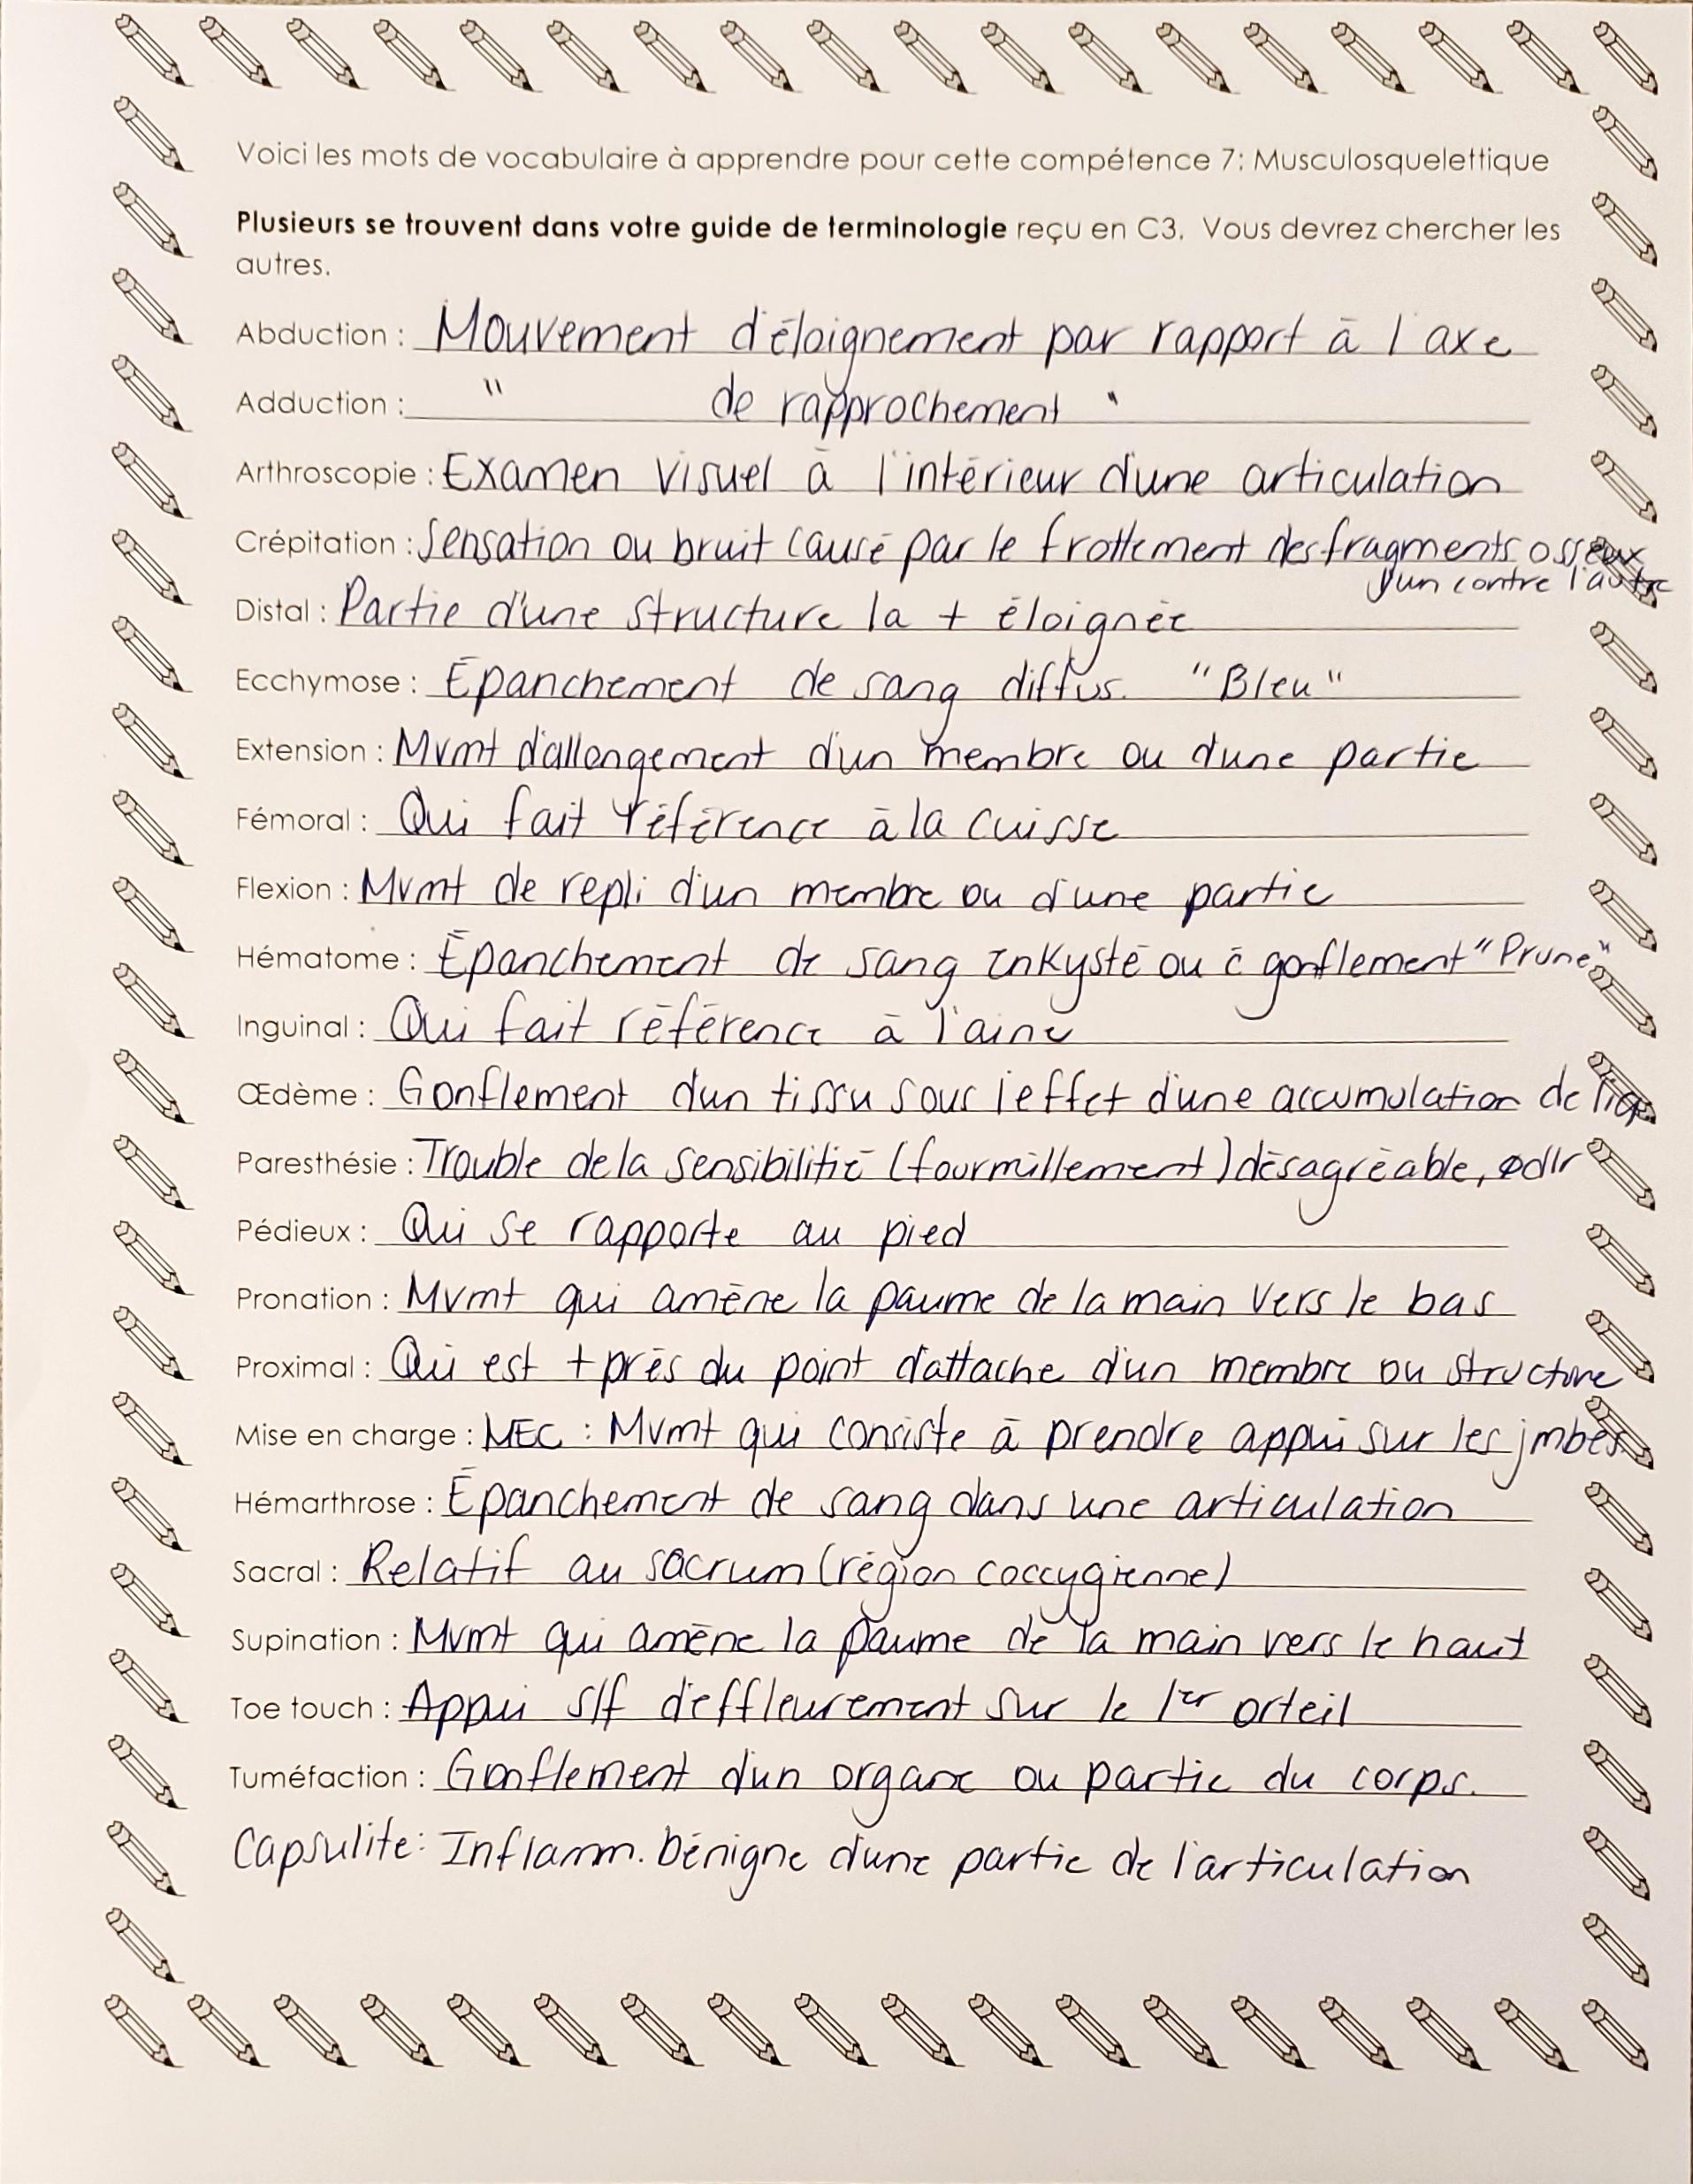 Voici les mots de vocabulaire à apprendre pour cette compétence 7: Musculosquelettique
Plusieurs se trouvent dans votre guide de terminologie reçu en C3. Vous devrez chercher les
autres.
Abduction : Mouvement d'éloignement par rapport à l'axe
Adduction : " de rapprochement "
Arthroscopie : Examen visuel à l'intérieur d'une articulation
Crépitation : Sensation ou bruit causé par le frottement des fragments osseux
l'un contre l'autre
Distal : Partie d'une structure la + éloignée
Ecchymose : Épanchement de sang diffus. "Bleu"
Extension : Mvmt d'allongement d'un membre ou d'une partie
Fémoral : Qui fait référence à la cuisse
Flexion : Mvmt de repli d'un membre ou d'une partie
Hématome : Épanchement de sang enkysté ou c̄ gonflement "Prune"
Inguinal : Qui fait référence à l'aine
Œdème : Gonflement d'un tissu sous l'effet d'une accumulation de liq
Paresthésie : Trouble de la sensibilitié (fourmillement) désagréable, ødlr
Pédieux : Qui se rapporte au pied
Pronation : Mvmt qui amène la paume de la main vers le bas
Proximal : Qui est + près du point d'attache d'un membre ou structure
Mise en charge : MEC : Mvmt qui consiste à prendre appui sur les jmbes
Hémarthrose : Épanchement de sang dans une articulation
Sacral : Relatif au sacrum (région coccygienne)
Supination : Mvmt qui amène la paume de la main vers le haut
Toe touch : Appui s/f d'effleurement sur le 1er orteil
Tuméfaction : Gonflement d'un organe ou partie du corps.
Capsulite: Inflamm. bénigne d'une partie de l'articulation